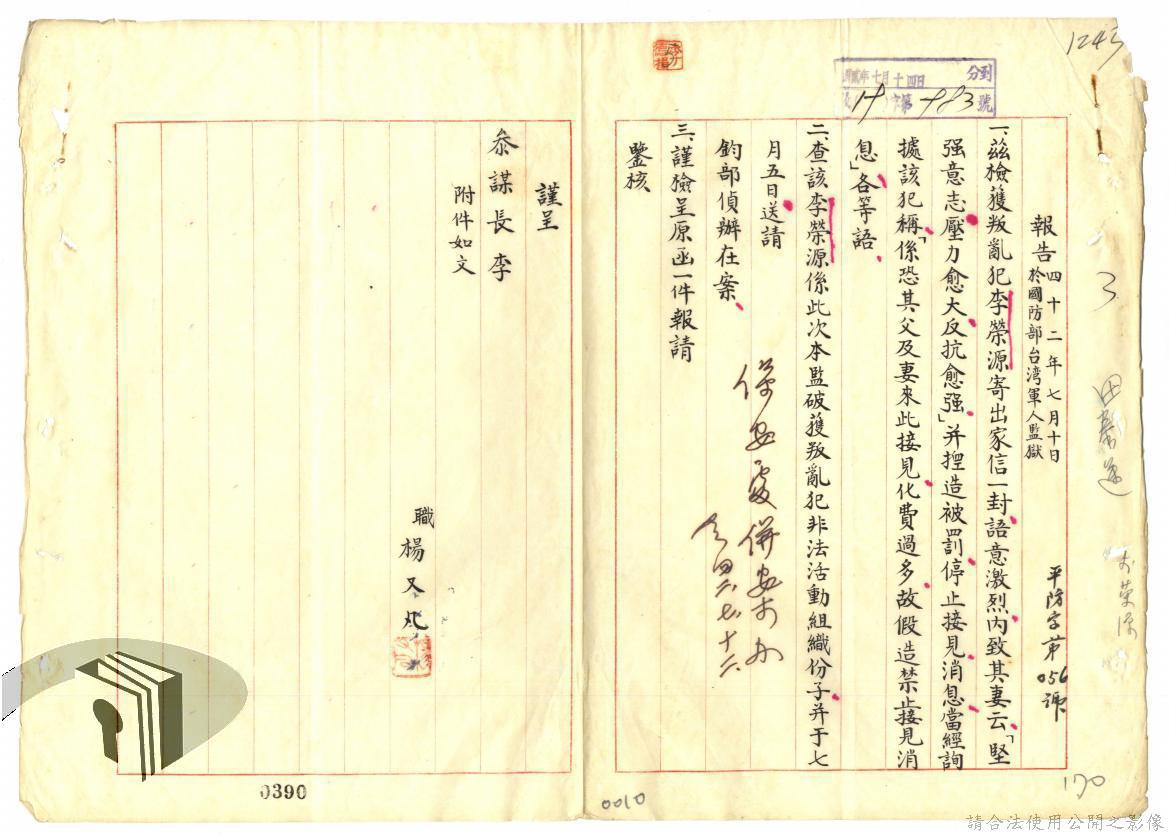 1243
分到
年十月十四日
字第 983 號
報告 四十二年七月十日
於國防部台湾軍人監獄
平防字第056號
一、茲檢獲叛亂犯李榮源寄出家信一封語意激烈內致其妻云「堅
强意志壓力愈大反抗愈强」并揑造被罰停止接見消息當經詢
據該犯稱「係恐其父及妻來此接見化費過多故假造禁止接見消
息」各等語、
二、查該李榮源係此次本監破獲叛亂犯非法活動組織份子并于七
月五日送請
鈞部偵辦在案、
三、謹檢呈原函一件報請
鑒核
保安處併案
七、十六
謹呈
叅謀長李
附件如文
職 楊又凡
3
李榮源
170
0010
0390
請合法使用公開之影像